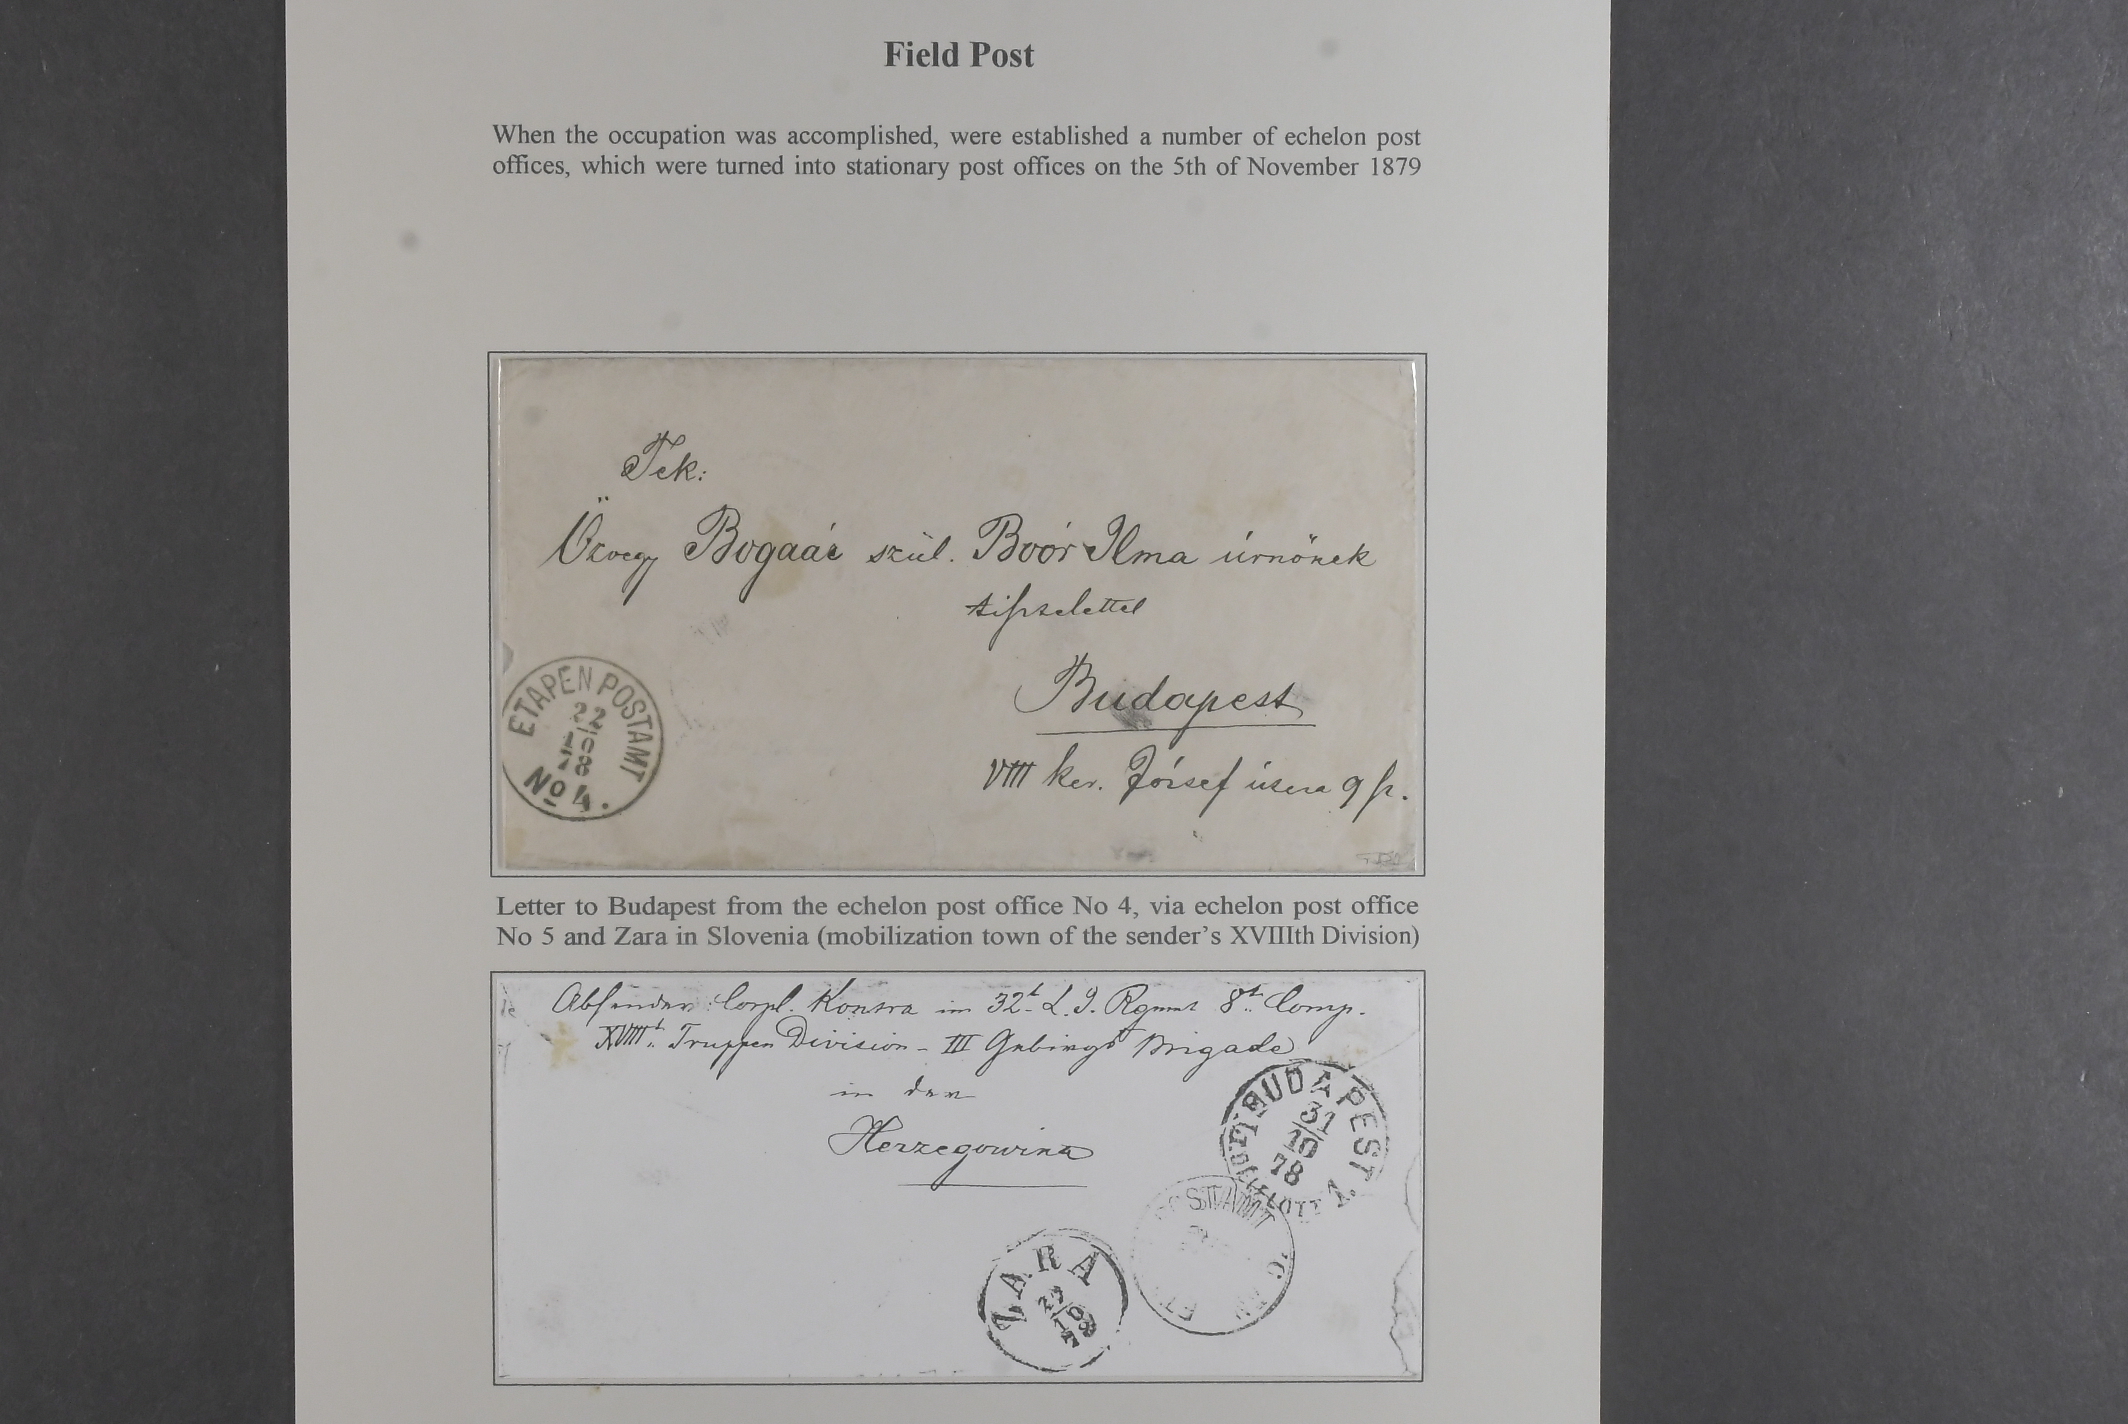 Field Post
When the occupation was accomplished, were established a number of echelon post
offices, which were turned into stationary post offices on the 5th of November 1879
Tek:
Özvegy Bogaár szül. Boór Ilma úrnőnek
tisztelettel
Budapest
VIII ker. József útcza 9 sz.
ETAPEN POSTAMT
22
10
78
No 4.
Letter to Budapest from the echelon post office No 4, via echelon post office
No 5 and Zara in Slovenia (mobilization town of the sender's XVIIIth Division)
Absender: Corpl. Konsra im 32t. L. I. Rgmnt 8t. Comp.
XVIIIt. Truppen Division - III Gebirgs Brigade
in der
Herzegowina
BUDAPEST
31
10
78
POSTAMT
ZARA